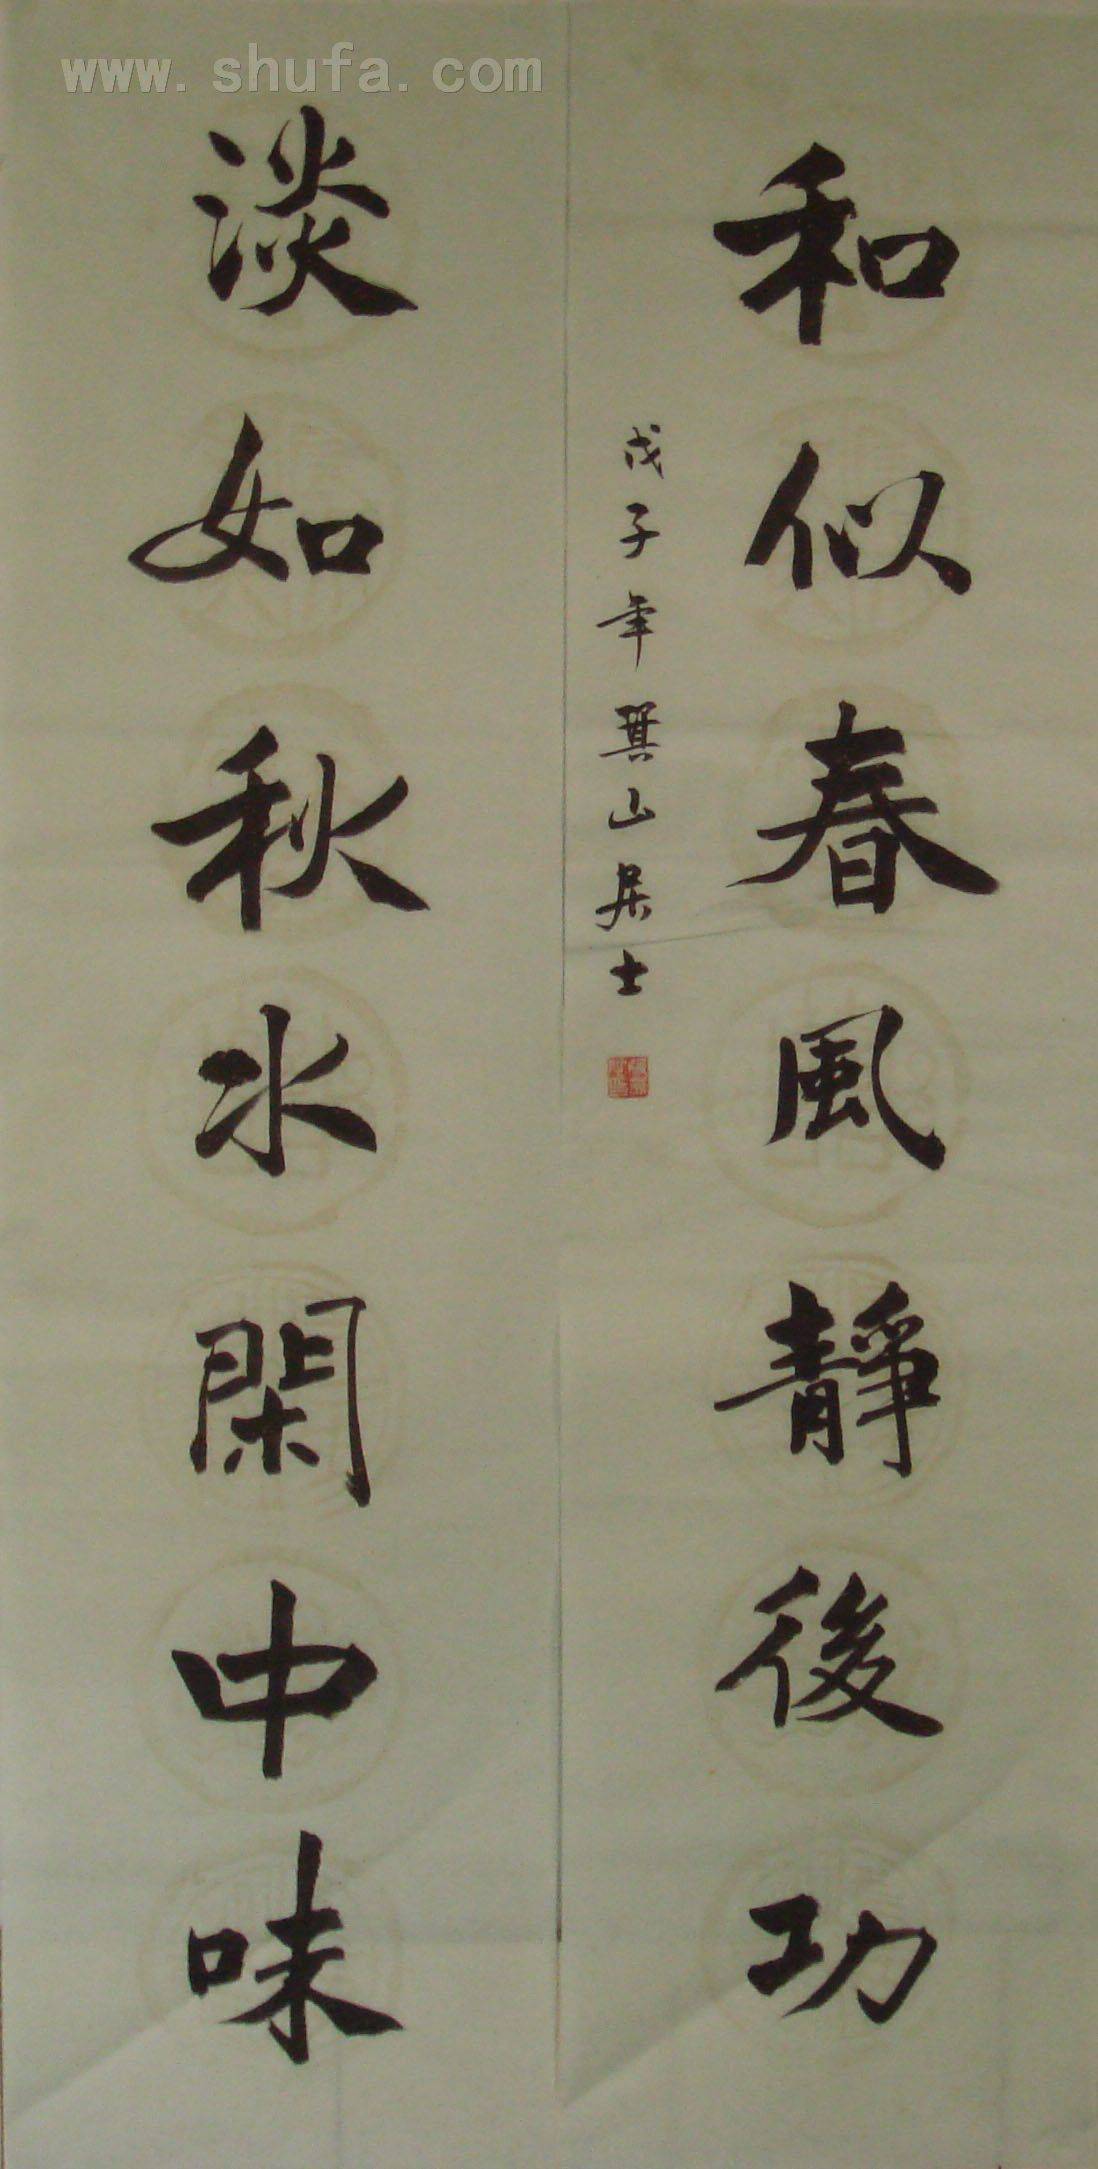 www.shufa.com
和似春風靜後功
戊子年箕山居士
淡如秋水閑中味